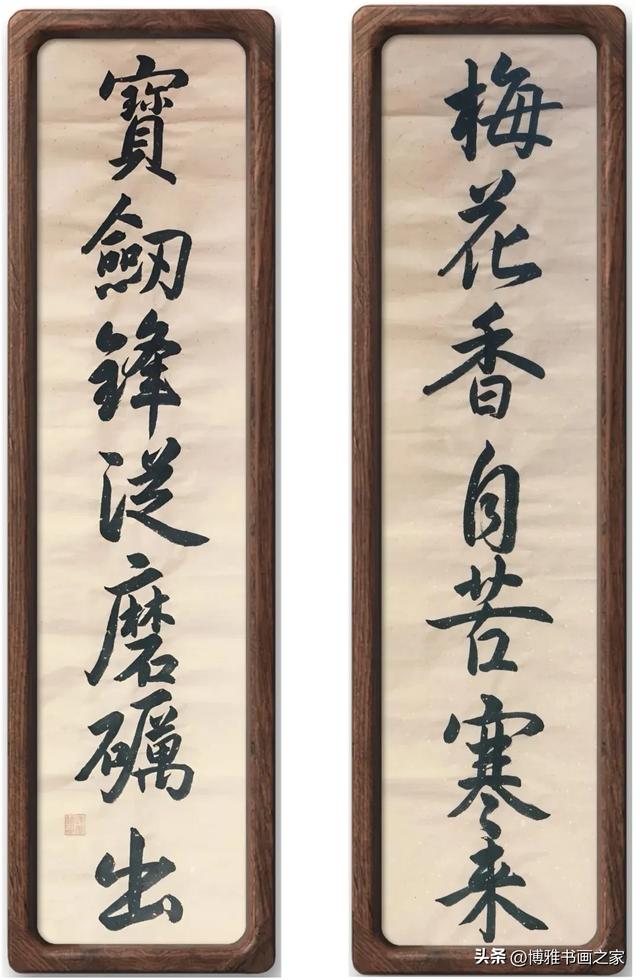 寶劒鋒從磨礪出
梅花香自苦寒來
头条 @博雅书画之家